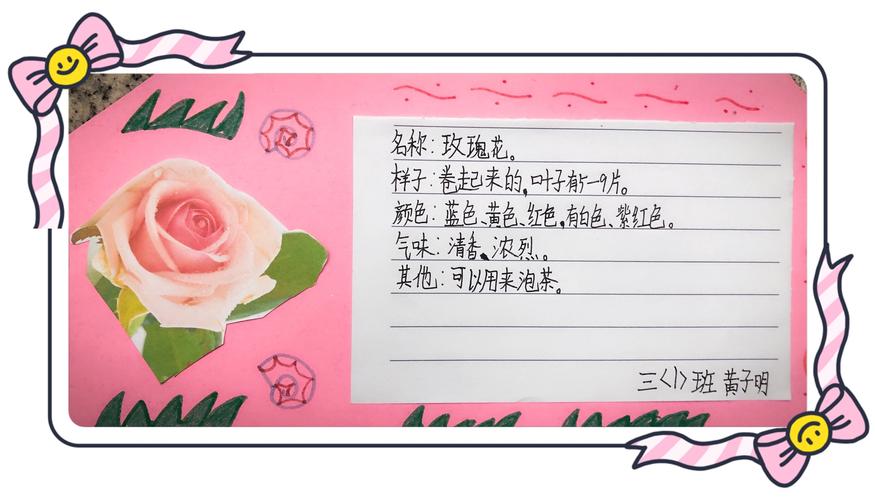 名称：玫瑰花。
样子：卷起来的，叶子有5-9片。
颜色：蓝色、黄色、红色，有白色、紫红色。
气味：清香、浓烈。
其他：可以用来泡茶。
三<1>班 黄子明